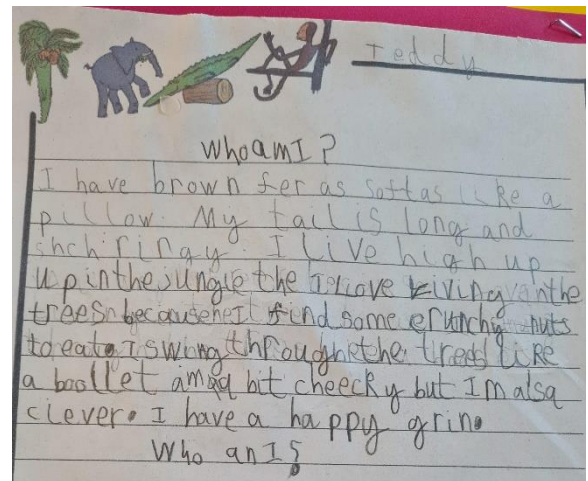 Teddy
Who am I?
I have brown fer as soft as like a
pillow. My tail is long and
I live high up
up in the jungle the I love living in the
trees because he I find some crunchy nuts
to eat. I swing through the trees like
a boollet am a bit cheecky but I'm also
clever. I have a happy grin.
Who an I?